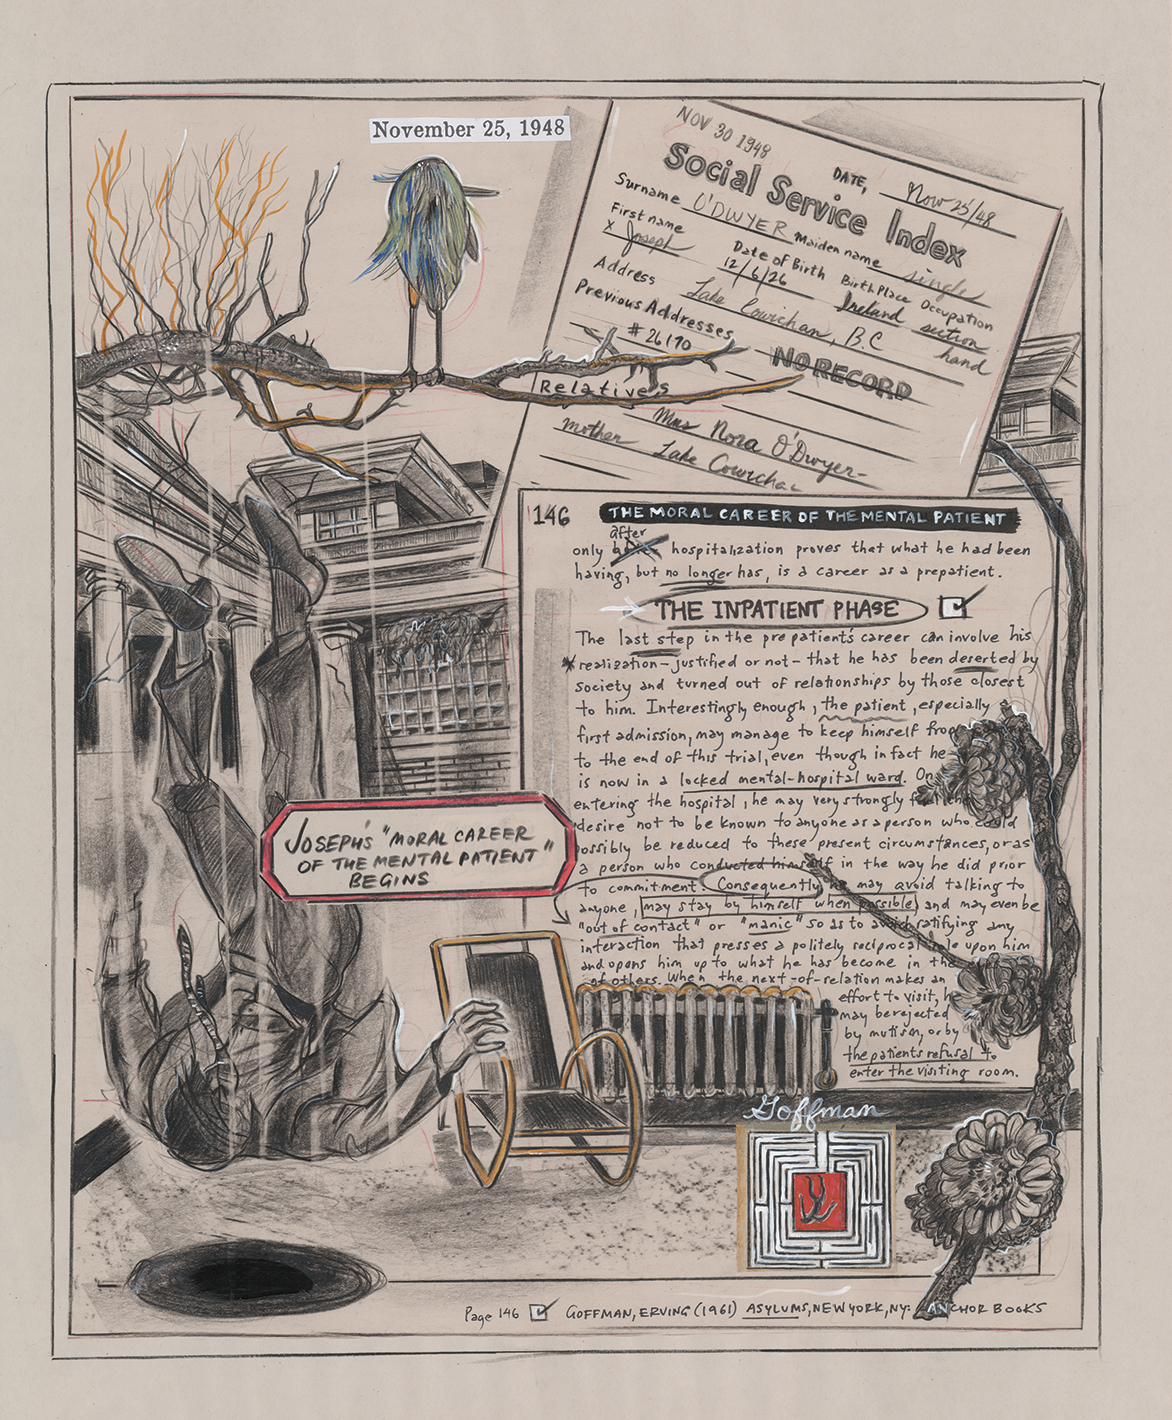 November 25, 1948
NOV 30 1948
Social Service Index
DATE, Nov 25/48
Surname O'DWYER Maiden name single
First name
x Joseph
Date of Birth
12/6/26
Birth Place
Ireland
Occupation
section
hand
Address Lake Cowichan, B.C
Previous Addresses
# 26170
NO RECORD
Relatives
mother Mrs Nora O'Dwyer-
Lake Cowichan
146 THE MORAL CAREER OF THE MENTAL PATIENT
after
only hospitalization proves that what he had been
having, but no longer has, is a career as a prepatient.
THE INPATIENT PHASE
The last step in the prepatient's career can involve his
realization - justified or not - that he has been deserted by
society and turned out of relationships by those closest
to him. Interestingly enough, the patient, especially
first admission, may manage to keep himself from
to the end of this trial, even though in fact he
is now in a locked mental-hospital ward. On
entering the hospital, he may very strongly feel the
desire not to be known to anyone as a person who could
possibly be reduced to these present circumstances, or as
a person who conducted himself in the way he did prior
to commitment. Consequently he may avoid talking to
anyone, may stay by himself when possible, and may even be
"out of contact" or "manic" so as to avoid ratifying any
interaction that presses a politely reciprocal role upon him
and opens him up to what he has become in the
of others. When the next-of-relation makes an
effort to visit, he
may be rejected
by mutism, or by
the patients refusal to
enter the visiting room.
JOSEPH'S "MORAL CAREER
OF THE MENTAL PATIENT"
BEGINS
Goffman
Page 146 GOFFMAN, ERVING (1961) ASYLUMS, NEW YORK, NY: ANCHOR BOOKS